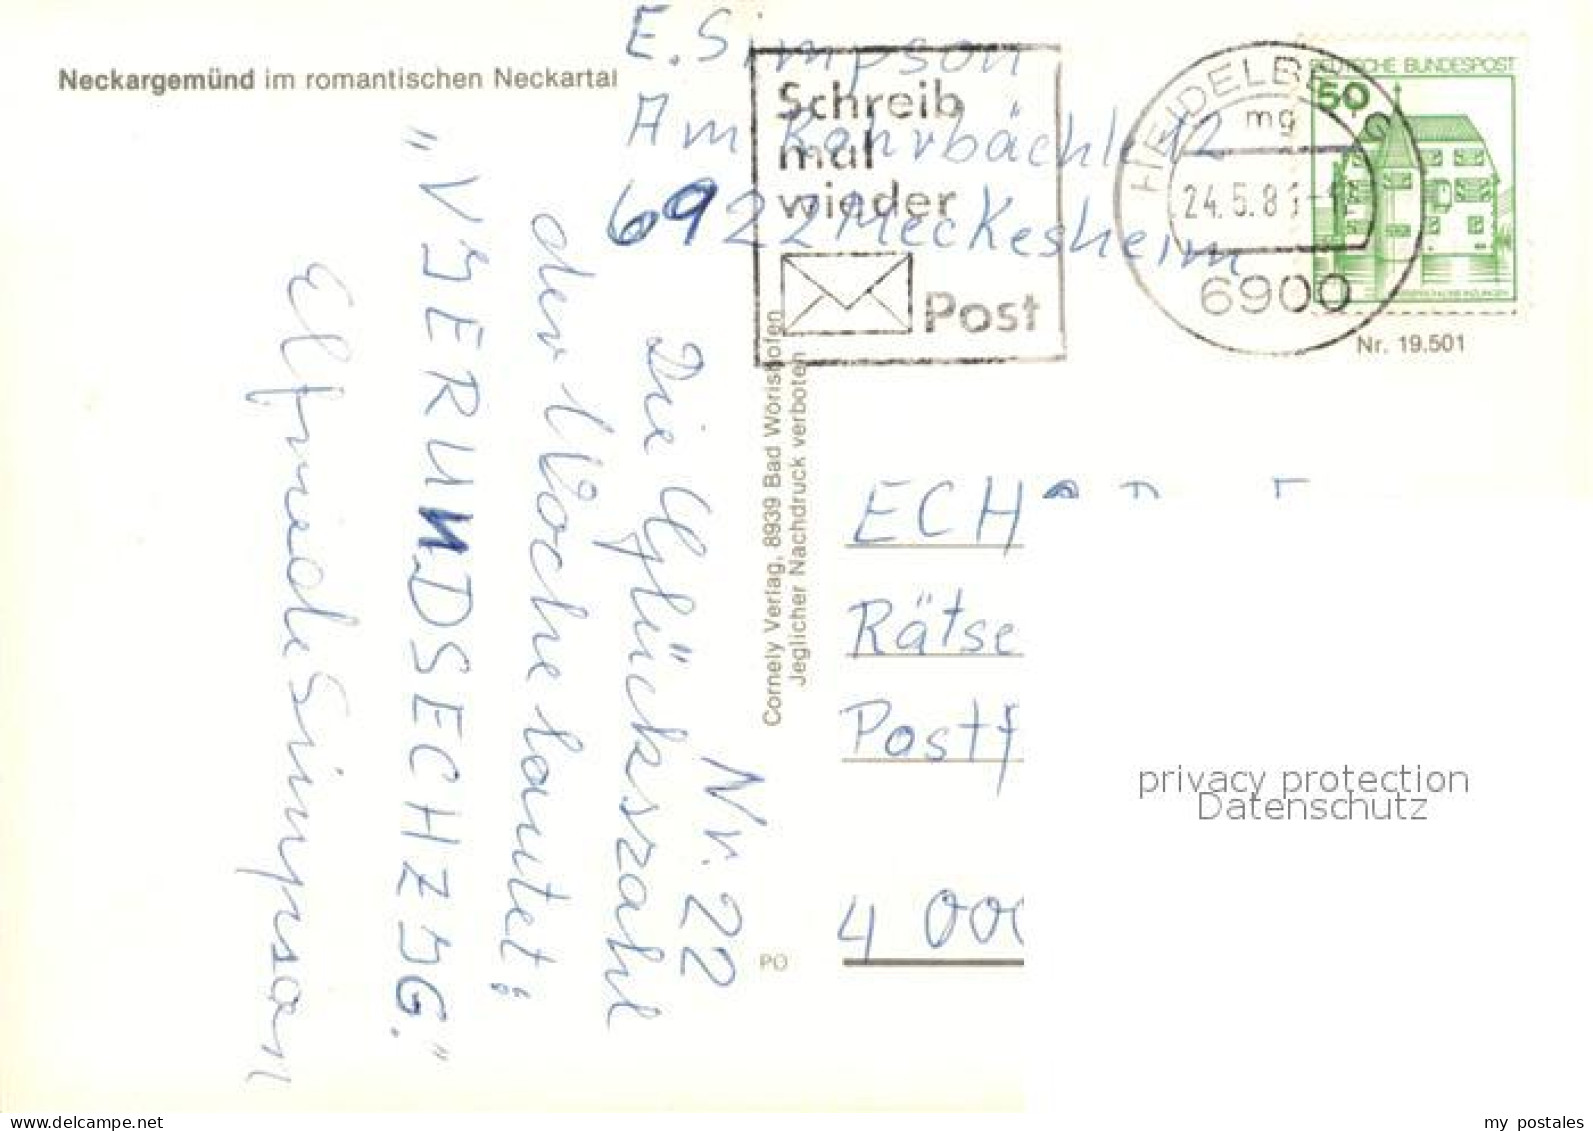 Neckargemünd im romantischen Neckartal
E. Simpson
Am Rohrbächle 12
6922 Meckesheim
Schreib
mal
wieder
Post
HEIDELBERG
mg
24.5.8
6900
DEUTSCHE BUNDESPOST
50
Nr. 19.501
Nr. 22
Die Glückszahl
der Woche lautet:
"VIERUNDSECHZIG."
Elfriede Simpson
Cornely Verlag, 8939 Bad Wörishofen
Jeglicher Nachdruck verboten
PO
ECH
Rätse
Postf
4 000
privacy protection
Datenschutz
my postales
delcampe.net